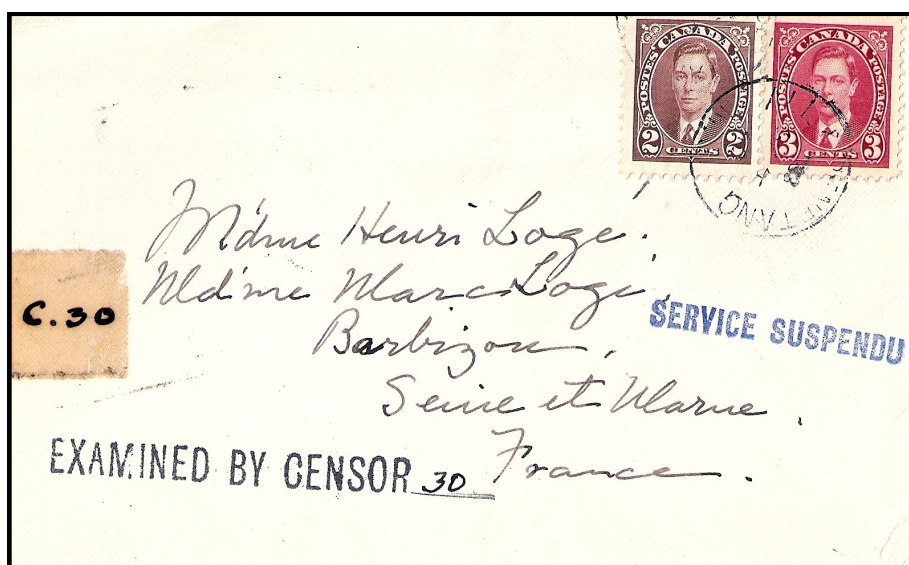 POSTES CANADA POSTAGE
2 CENTS 2
POSTES CANADA POSTAGE
3 CENTS 3
M'dme Henri Logé.
M'dme Marc Logé,
Barbizon,
Seine et Marne.
France.
C.30
SERVICE SUSPENDU
EXAMINED BY CENSOR 30